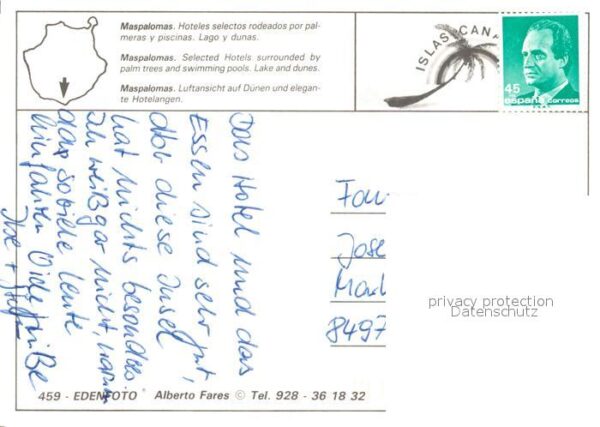 Maspalomas. Hoteles selectos rodeados por pal-
meras y piscinas. Lago y dunas.
Maspalomas. Selected Hotels surrounded by
palm trees and swimming pools. Lake and dunes.
Maspalomas. Luftansicht auf Dünen und elegan-
te Hotelangen.
ISLAS CANA
45
españa correos
Das Hotel und das
Essen sind sehr gut,
aber diese Insel
hat nichts besonderes
Ich weiß gar nicht, warum
das soviele Leute
hinfahren Viele Grüße
Ihre +
Fam
Jose
8497
privacy protection
Datenschutz
459 - EDENFOTO Alberto Fares © Tel. 928 - 36 18 32